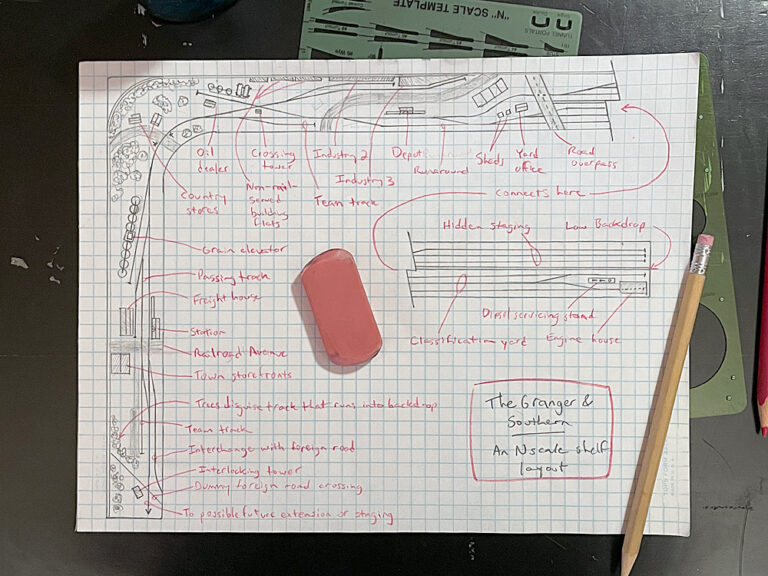 "N" SCALE TEMPLATE
TUNNEL PORTALS
Oil dealer
Crossing tower
Industry 2
Depot
Sheds
Yard office
Road overpass
Country stores
Non-rail-served building flats
Team track
Industry 3
Runaround
Connects here
Hidden staging
Low Backdrop
Grain elevator
Passing track
Freight house
Station
Railroad Avenue
Town storefronts
Classification yard
Diesel servicing stand
Engine house
Trees disguise track that runs into backdrop
Team track
Interchange with foreign road
Interlocking tower
Dummy foreign road crossing
To possible future extension or staging
The Granger &
Southern
An N scale shelf
layout